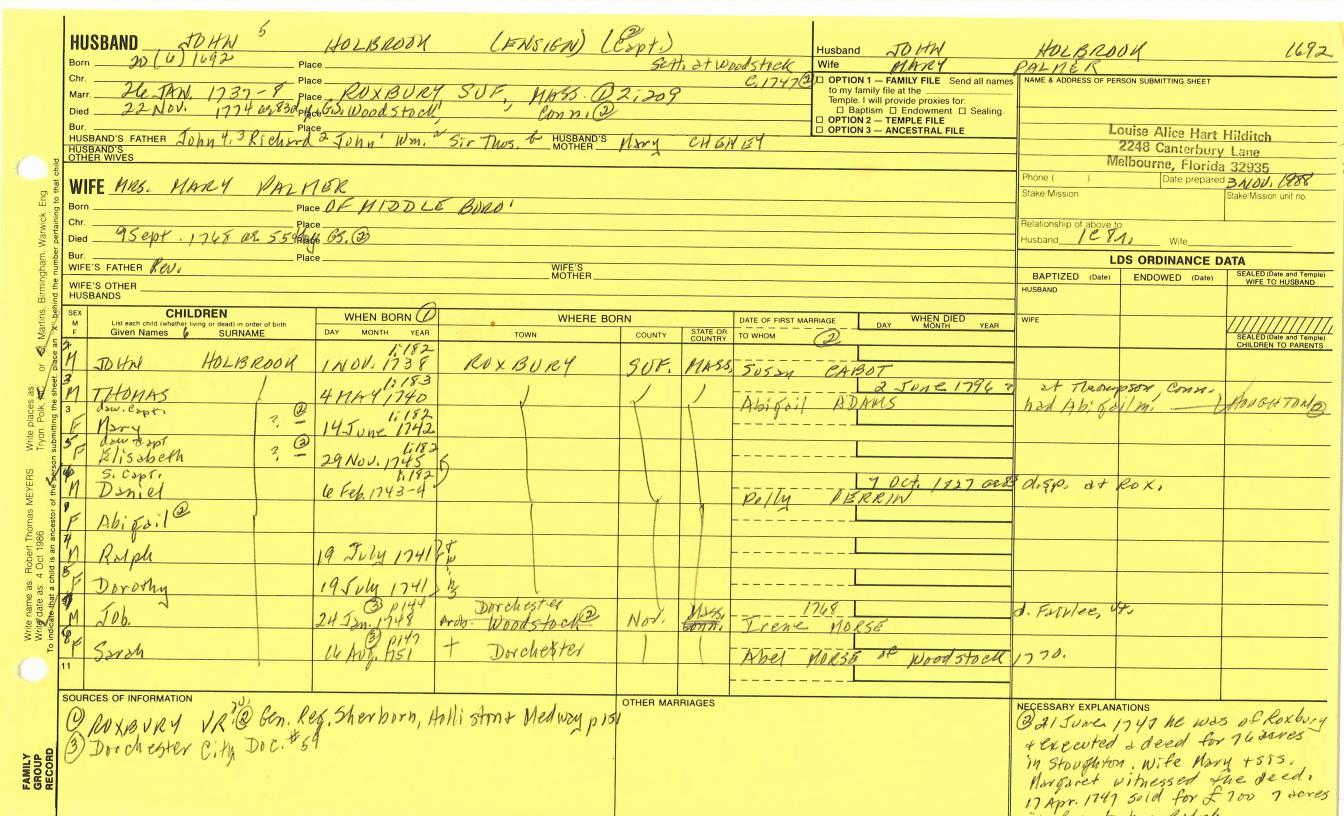 HUSBAND JOHN 5 HOLBROOK (ENSIGN) (Capt.) ②
Born 20 (6) 1692 Place Sett. at Woodstock
Chr. Place C. 1747 ②
Marr. 26 JAN. 1737-8 Place ROXBURY SUF., MASS. ① 2;209
Died 22 Nov. 1774 ae 83d Place G.S. Woodstock, Conn. ②
Bur. Place
HUSBAND'S FATHER John 4, 3 Richard 2 John 1 Wm. Sir Thos. HUSBAND'S MOTHER Mary CHENEY
HUSBAND'S OTHER WIVES
Husband JOHN HOLBROOK 1692
Wife MARY PALMER
☐ OPTION 1 — FAMILY FILE Send all names
to my family file at the
Temple. I will provide proxies for:
☐ Baptism ☐ Endowment ☐ Sealing
☐ OPTION 2 — TEMPLE FILE
☐ OPTION 3 — ANCESTRAL FILE
NAME & ADDRESS OF PERSON SUBMITTING SHEET
Louise Alice Hart Hilditch
2248 Canterbury Lane
Melbourne, Florida 32935
Phone ( ) Date prepared 3 NOV. 1988
Stake/Mission Stake/Mission unit no.
Relationship of above to:
Husband 1C 8r. Wife
WIFE MRS. MARY PALMER
Born Place OF MIDDLEBORO'
Chr. Place
Died 9 Sept. 1768 ae. 55 Place GS. ②
Bur. Place
WIFE'S FATHER Rev. WIFE'S MOTHER
WIFE'S OTHER HUSBANDS
LDS ORDINANCE DATA
BAPTIZED (Date) ENDOWED (Date) SEALED (Date and Temple) WIFE TO HUSBAND
HUSBAND
WIFE
SEALED (Date and Temple) CHILDREN TO PARENTS
SEX M F
CHILDREN
List each child (whether living or dead) in order of birth
Given Names SURNAME
WHEN BORN ①
DAY MONTH YEAR
WHERE BORN
TOWN COUNTY STATE OR COUNTRY
DATE OF FIRST MARRIAGE
TO WHOM ②
WHEN DIED
DAY MONTH YEAR
M JOHN HOLBROOK 1 NOV. 1738 1;182 ROXBURY SUF. MASS. Susan CABOT
M THOMAS 4 MAY 1740 1;183 Abigail ADAMS 2 June 1796 at Thompson, Conn. had Abigail m. HOUGHTON ②
3 F dau. Capt. Mary ? ② 14 June 1742 1;182
5 F dau Capt Elisabeth ? ② 29 Nov. 1745 1;182
M S. Capt. Daniel 6 Feb. 1743-4 1;182 Polly PERRIN 7 Oct. 1827 d.s.p. at Rox.
F Abigail ②
M Ralph 19 July 1741
F Dorothy 19 July 1741
M Job. 24 Jan. 1748 ③ p144 Dorchester Prob. Woodstock ② Nor. Mass. Conn. 1768 Irene MORSE d. Fairlee, Vt.
F Sarah 16 Aug. 1751 ③ p147 + Dorchester Abel MORSE of Woodstock 1770.
11
SOURCES OF INFORMATION
① ROXBURY VR ② Gen. Reg. Sherborn, Holliston & Medway p151
③ Dorchester City Doc. #59
OTHER MARRIAGES
NECESSARY EXPLANATIONS
② 21 June 1747 he was of Roxbury
+ executed a deed for 76 acres
in Stoughton. Wife Mary + sis.
Margaret witnessed the deed.
17 Apr. 1747 sold for £700 7 acres
Write name as: Robert Thomas MEYERS Write places as
Write date as: 4 Oct 1986
Martins, Birmingham, Warwick, Eng
To indicate that a child is an ancestor of the person submitting the sheet, place an "X" behind the number pertaining to that child
FAMILY
GROUP
RECORD